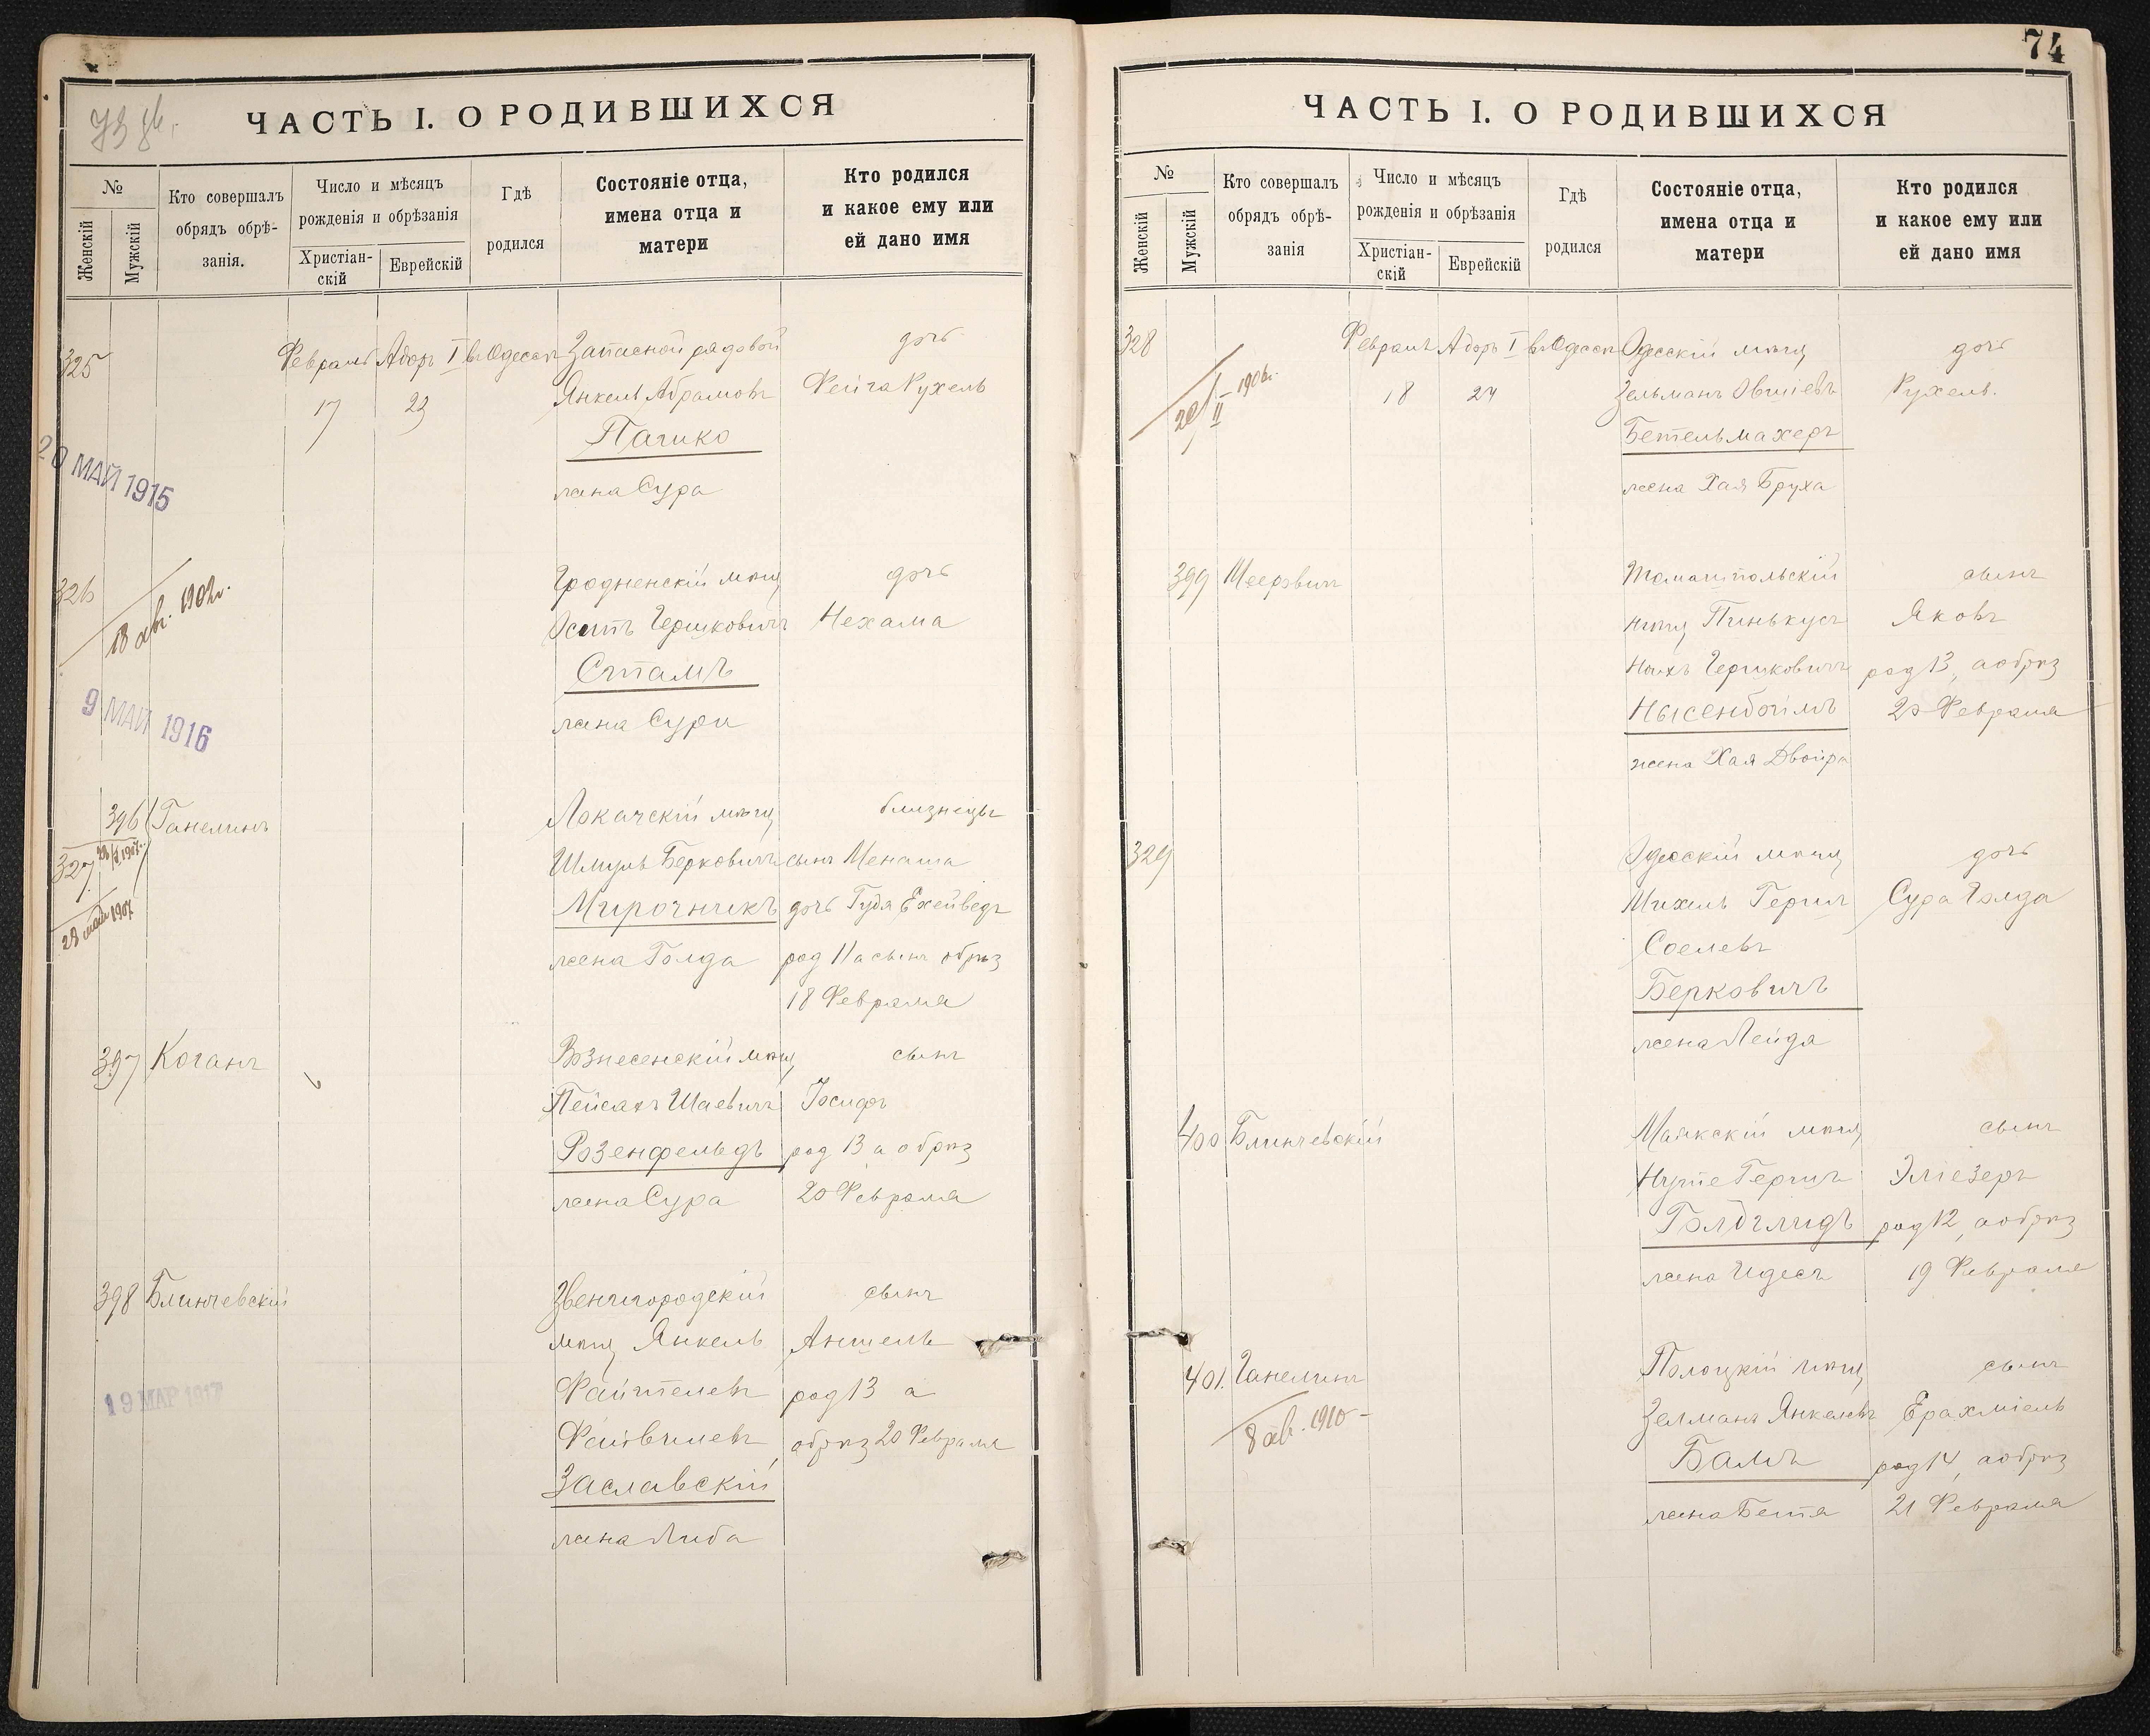 ЧАСТЬ I. О РОДИВШИХСЯ
№
Женскій
Мужскій
Кто совершалъ
обрядъ обрѣ-
занія.
Число и мѣсяцъ
рожденія и обрѣзанія
Христіан-
скій
Еврейскій
Гдѣ
родился
Состояніе отца,
имена отца и
матери
Кто родился
и какое ему или
ей дано имя
325
Февраль Адоръ I въ Одессѣ Запасной рядовой дочь
17 23 Янкель Абрамовъ Фейга Рухель
Пачико
жена Сура
20 МАЙ 1915
326 Гродненскій мѣщ дочь
18 авг. 1902г.
Осипъ Гершковичъ Нехама
Стамъ
жена Сури
9 МАЙ 1916
396 Ганелинъ Локачскій мѣщ близнецы
327 Шмуль Берковичъ сынъ Менаша
Мирочникъ дочь Гудя Ехейведъ
28 мая 1907
жена Голда род 11 а сынъ обрѣз
18 Февраля
397 Коганъ Вознесенскій мѣщ сынъ
Пейсахъ Шаевичъ Іосифъ
Розенфельдъ род 13 а обрѣз
жена Сура 20 Февраля
398 Блинчевскій Звенигородскій сынъ
мѣщ Янкель Аншель
19 МАР 1917
Файтелевъ род 13 а
Файвишевъ обрѣз 20 Февраля
Заславскій
жена Либа
74
ЧАСТЬ I. О РОДИВШИХСЯ
№
Женскій
Мужскій
Кто совершалъ
обрядъ обрѣ-
занія
Число и мѣсяцъ
рожденія и обрѣзанія
Христіан-
скій
Еврейскій
Гдѣ
родился
Состояніе отца,
имена отца и
матери
Кто родился
и какое ему или
ей дано имя
328 Февраль Адоръ I въ Одессѣ Одесскій мѣщ дочь
18 24 Зельманъ Овшіевъ Рухель.
Бетельмахеръ
жена Хая Бруха
399 Меерович Томашпольскій сынъ
мѣщ Пинькусъ Яковъ
Гершковичъ род 13, а обрѣз
Нысенбоймъ 20 Февраля
жена Хая Двойра
329 Одесскій мѣщ дочь
Михель Гершъ Сура Голда
Соелевъ
Берковичъ
жена Лейда
400 Блинчевскій Маякскій мѣщ сынъ
Герша Эліезеръ
Голдшмидъ род 12, а обрѣз
жена Идесъ 19 Февраля
401. Ганелинъ Полоцкій мѣщ сынъ
8 ав. 1910
Залманъ Янкелевъ Ерахміель
Бамъ род 14, а обрѣз
жена Бетя 21 Февраля